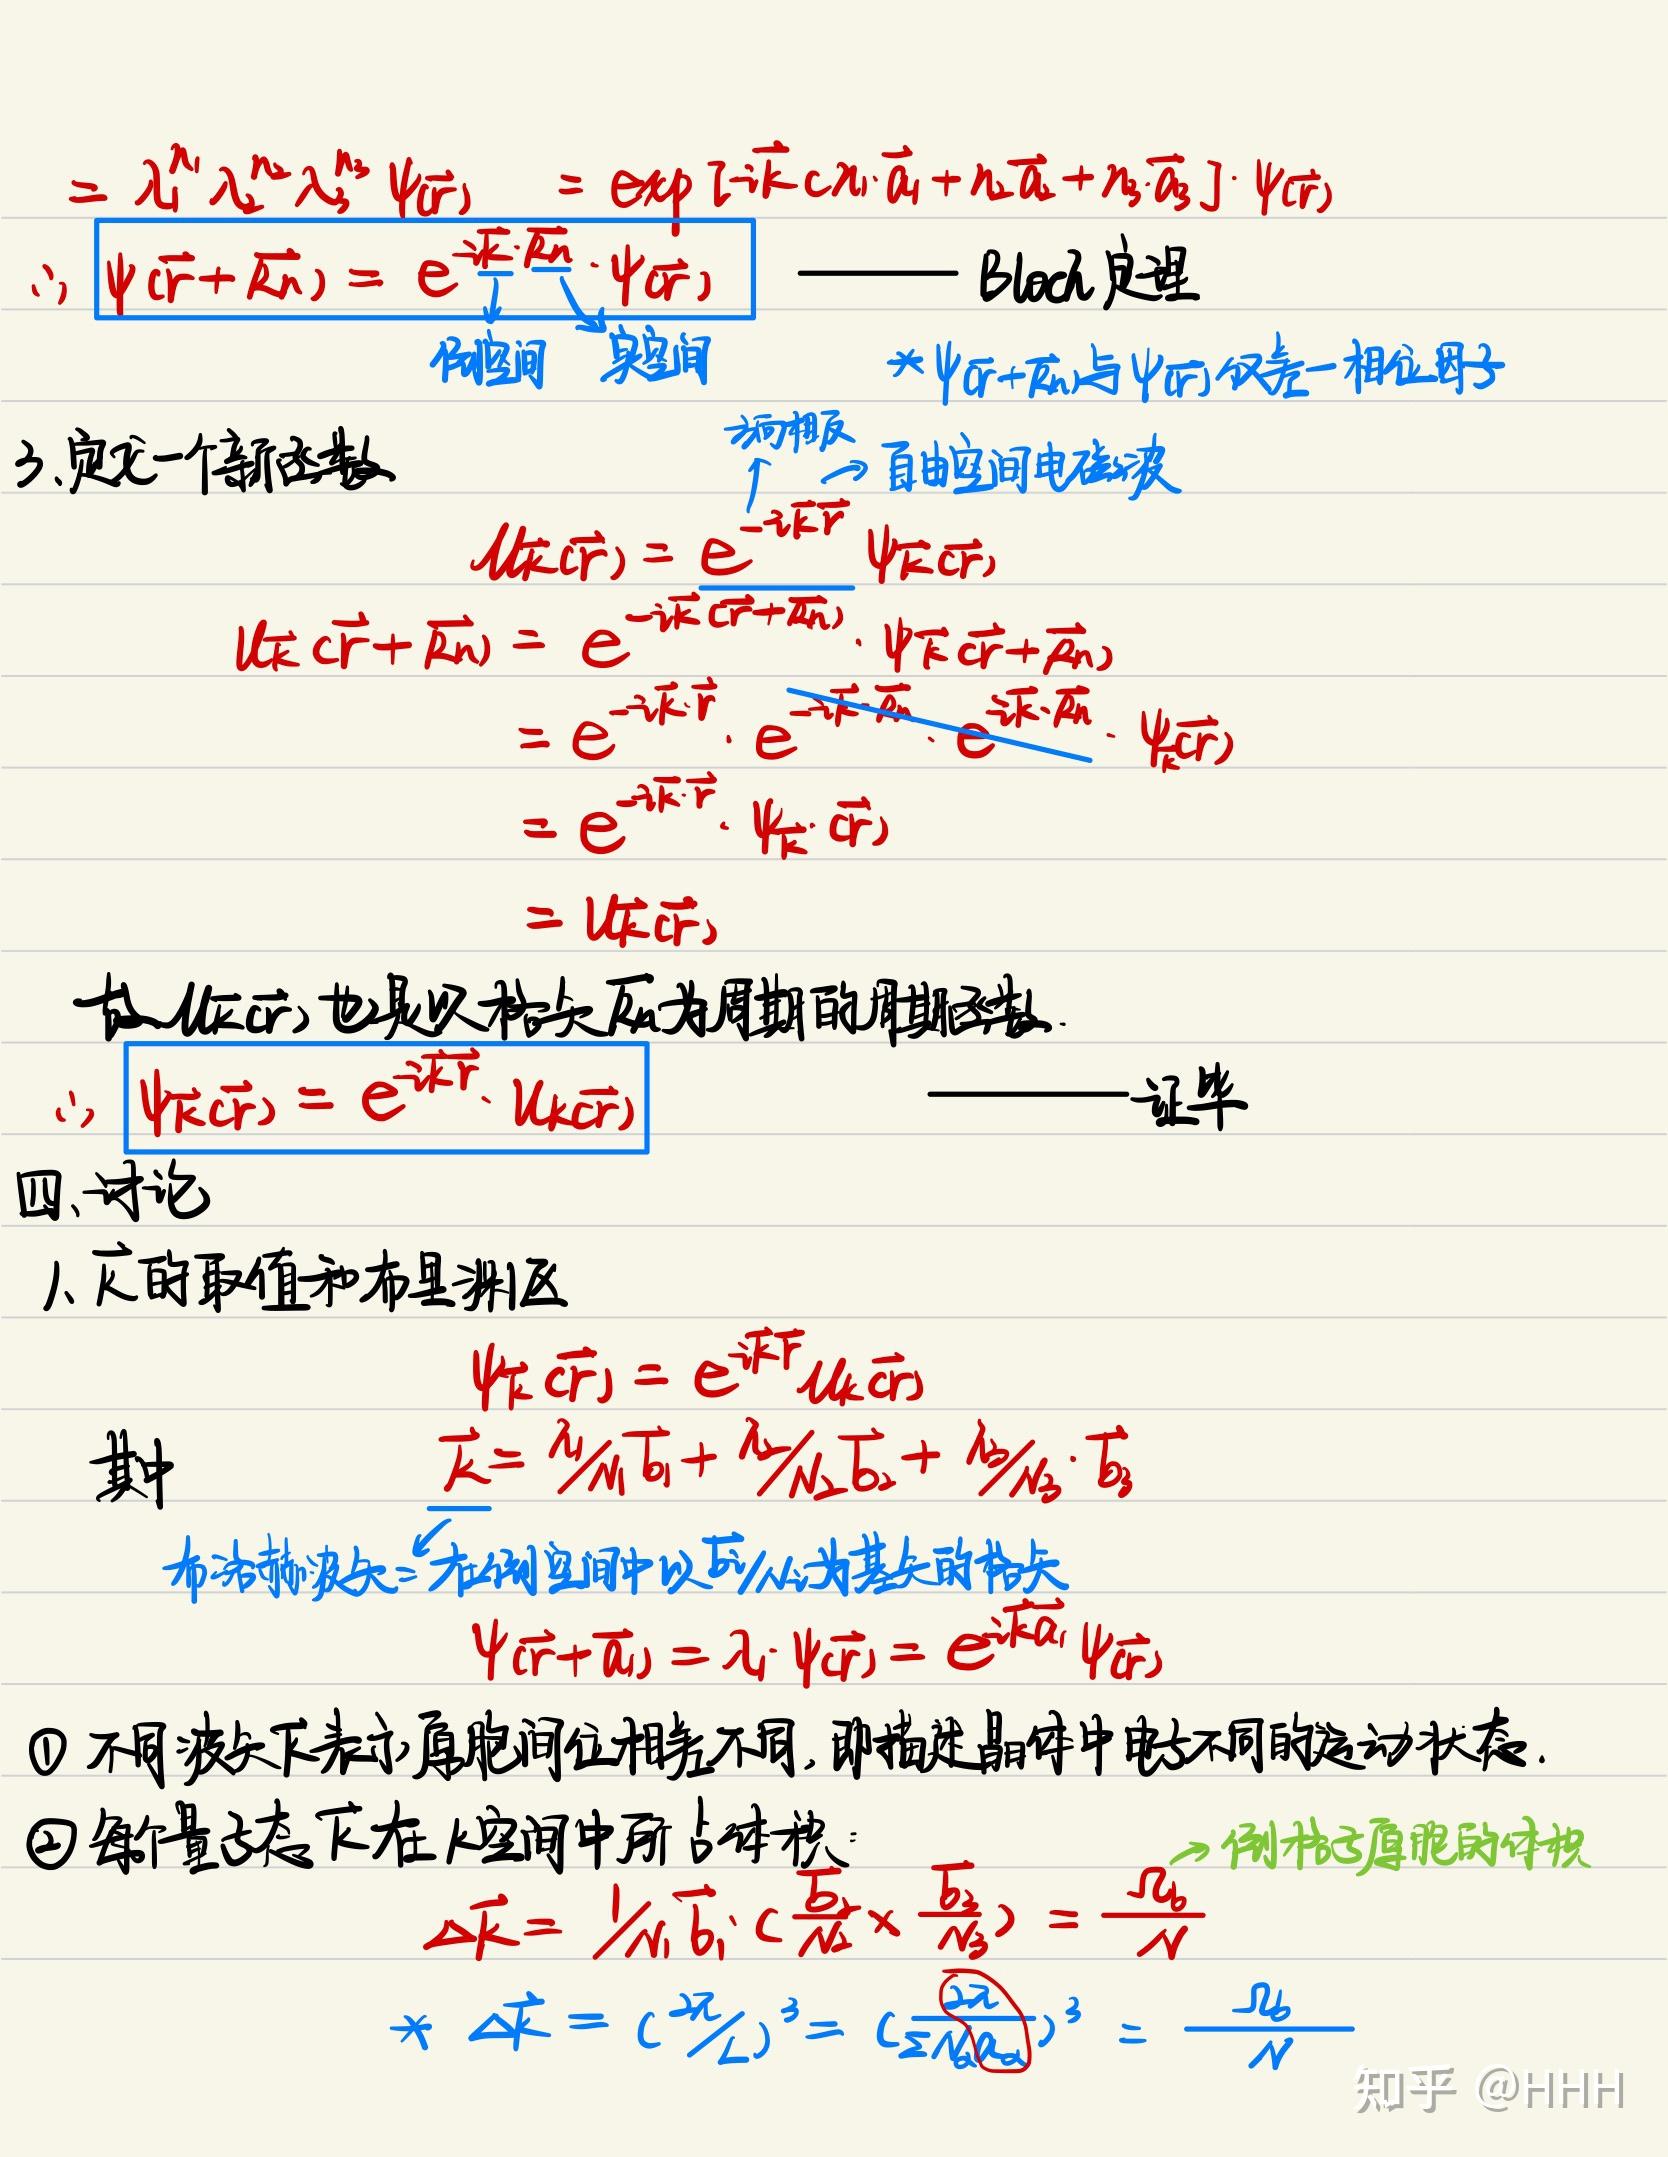 = λ₁ⁿ¹ λ₂ⁿ² λ₃ⁿ³ ψ(r⃗) = exp[ik⃗(n₁·a⃗₁+n₂a⃗₂+n₃·a⃗₃]·ψ(r⃗)
∴ ψ(r⃗+R⃗n) = e^{ik⃗·R⃗n}·ψ(r⃗) —— Bloch定理
倒空间 实空间 *ψ(r⃗+R⃗n)与ψ(r⃗)仅差一相位因子
方向相反
3、定义一个新函数 → 自由空间电磁波
u_k⃗(r⃗) = e^{-ik⃗r⃗} ψ_k⃗(r⃗)
u_k⃗(r⃗+R⃗n) = e^{-ik⃗(r⃗+R⃗n)}·ψ_k⃗(r⃗+R⃗n)
= e^{-ik⃗·r⃗}·e^{-ik⃗·R⃗n}·e^{ik⃗·R⃗n}·ψ_k⃗(r⃗)
= e^{-ik⃗·r⃗}·ψ_k⃗·(r⃗)
= u_k⃗(r⃗)
故u_k⃗(r⃗)也是以格矢R⃗n为周期的周期函数.
∴ ψ_k⃗(r⃗) = e^{ik⃗r⃗}·u_k(r⃗) —— 证毕
四、讨论
1、k⃗的取值和布里渊区
ψ_k⃗(r⃗) = e^{ik⃗r⃗} u_k(r⃗)
其中 k⃗ = λ₁/N₁ b⃗₁ + λ₂/N₂ b⃗₂ + λ₃/N₃·b⃗₃
布洛赫波矢=在倒空间中以b⃗i/Ni为基矢的格矢
ψ(r⃗+a⃗₁) = λ₁·ψ(r⃗) = e^{ik⃗a⃗₁} ψ(r⃗)
① 不同波矢k⃗表示原胞间位相差不同,即描述晶体中电子不同的运动状态.
② 每个量子态k⃗在k空间中所占体积: → 倒格子原胞的体积
Δk⃗ = 1/N₁ b⃗₁·(b⃗₂/N₂ × b⃗₃/N₃) = Ωb/N
* Δk⃗ = (2π/L)³ = (2π/ΣNαaα)³ = Ωb/N
知乎 @HHH